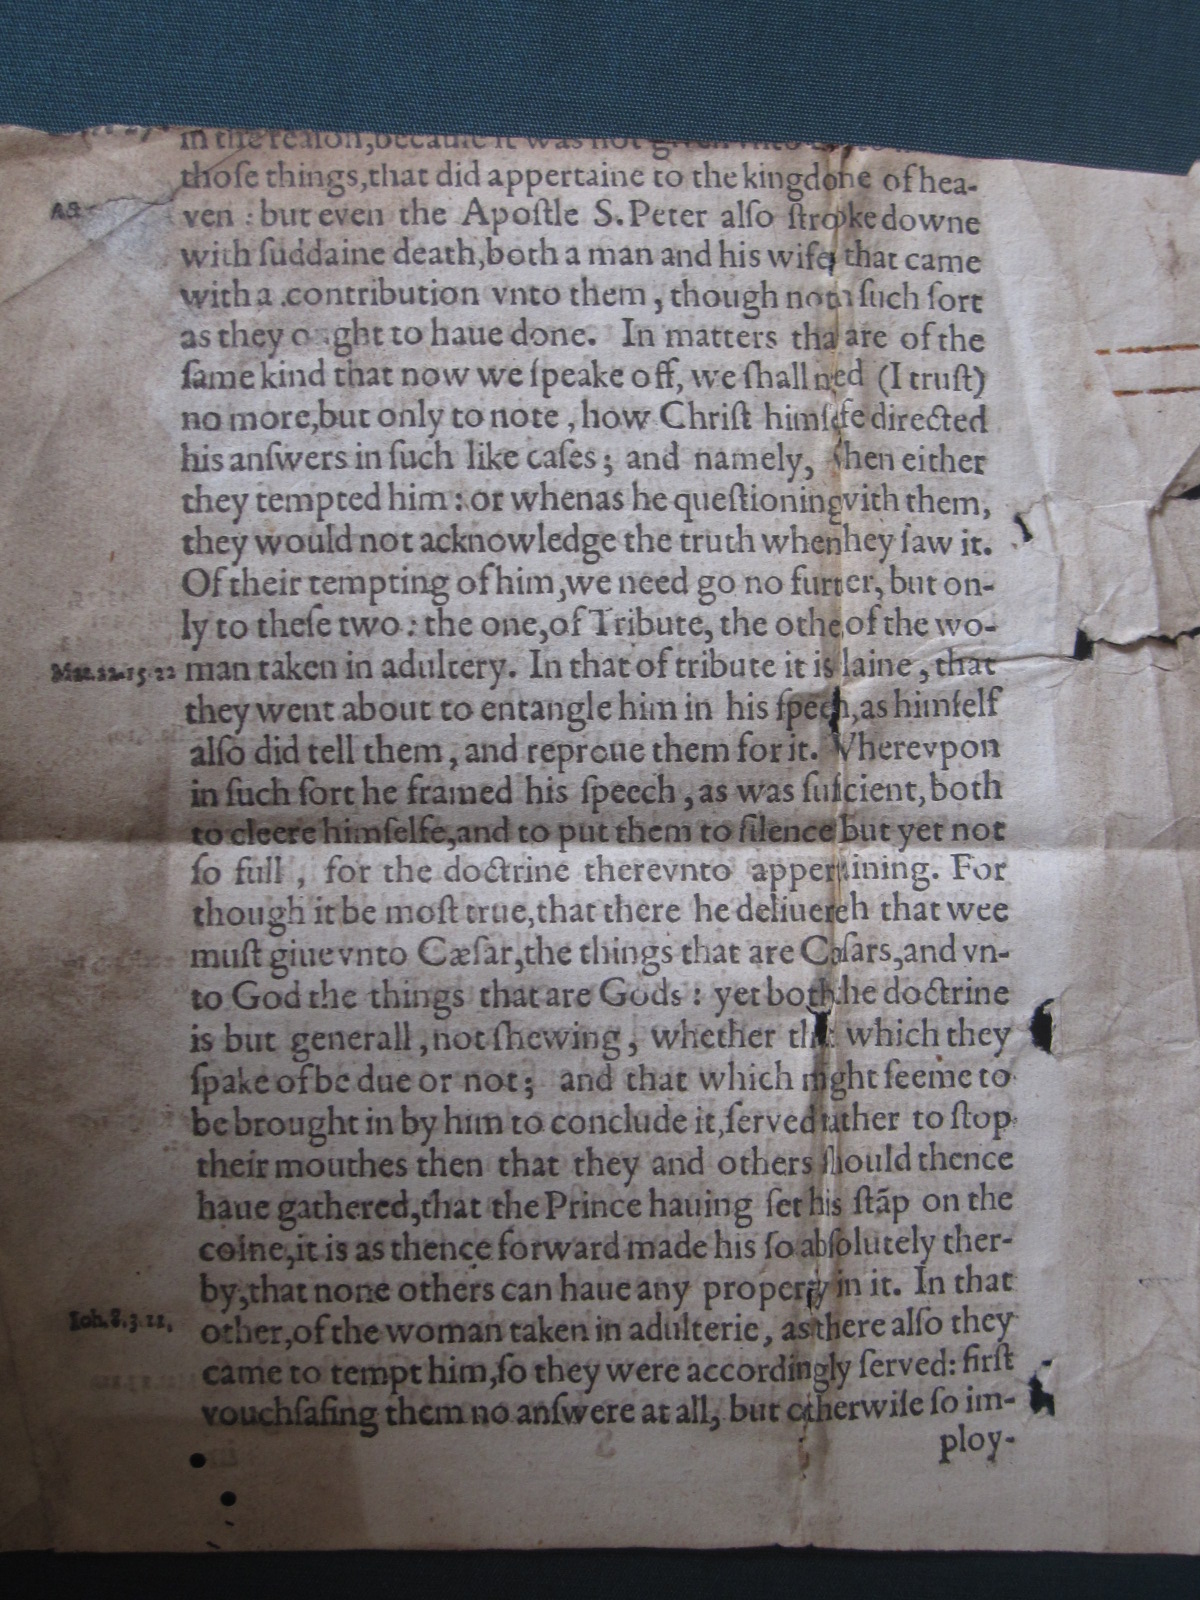 in the reaſon, becauſe it was not
thoſe things, that did appertaine to the kingdome of hea-
ven : but even the Apoſtle S. Peter alſo ſtroke downe
with ſuddaine death, both a man and his wife that came
with a contribution vnto them, though not ſuch ſort
as they ought to haue done. In matters that are of the
ſame kind that now we ſpeake off, we ſhall need (I truſt)
no more, but only to note, how Chriſt himſelfe directed
his anſwers in ſuch like caſes; and namely, when either
they tempted him: or whenas he queſtioning with them,
they would not acknowledge the truth when they ſaw it.
Of their tempting of him, we need go no further, but on-
ly to theſe two: the one, of Tribute, the other of the wo-
Mat. 22. 15. 22
man taken in adultery. In that of tribute it is plaine, that
they went about to entangle him in his ſpeech, as himſelf
alſo did tell them, and reproue them for it. Wherevpon
in ſuch ſort he framed his ſpeech, as was ſufficient, both
to cleere himſelfe, and to put them to ſilence but yet not
ſo full, for the doctrine therevnto appertaining. For
though it be moſt true, that there he deliuereth that wee
muſt giue vnto Cæſar, the things that are Cæſars, and vn-
to God the things that are Gods: yet both the doctrine
is but generall, not ſhewing, whether that which they
ſpake of be due or not; and that which might ſeeme to
be brought in by him to conclude it, ſerved rather to ſtop
their mouthes then that they and others ſhould thence
haue gathered, that the Prince hauing ſet his ſtãp on the
coine, it is as thence forward made his ſo abſolutely ther-
by, that none others can haue any property in it. In that
Ioh. 8. 3. 11.
other, of the woman taken in adulterie, as there alſo they
came to tempt him, ſo they were accordingly ſerved: firſt
vouchſafing them no anſwere at all, but otherwiſe ſo im-
ploy-